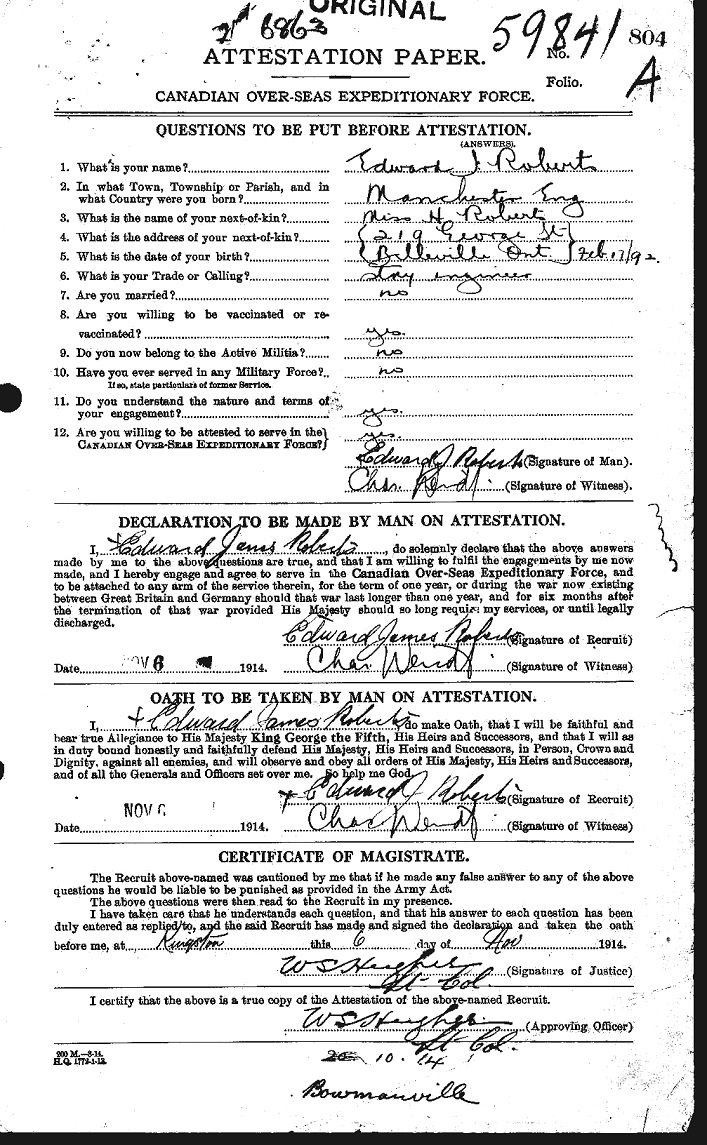 ORIGINAL
21st 6863
59841 804
ATTESTATION PAPER. No.
Folio. A
CANADIAN OVER-SEAS EXPEDITIONARY FORCE.
QUESTIONS TO BE PUT BEFORE ATTESTATION.
(ANSWERS).
1. What is your name? Edward J Roberts
2. In what Town, Township or Parish, and in
what Country were you born? Manchester Eng
3. What is the name of your next-of-kin? Miss H. Roberts
4. What is the address of your next-of-kin? 219 George St
5. What is the date of your birth? Belleville Ont Feb. 17/92.
6. What is your Trade or Calling? Stay engineer
7. Are you married? no
8. Are you willing to be vaccinated or re-
vaccinated? yes.
9. Do you now belong to the Active Militia? no
10. Have you ever served in any Military Force? no
If so, state particulars of former Service.
11. Do you understand the nature and terms of
your engagement? yes.
12. Are you willing to be attested to serve in the
CANADIAN OVER-SEAS EXPEDITIONARY FORCE? yes.
Edward J Roberts (Signature of Man).
Chas. Wendt (Signature of Witness).
DECLARATION TO BE MADE BY MAN ON ATTESTATION.
I, Edward James Roberts, do solemnly declare that the above answers
made by me to the above questions are true, and that I am willing to fulfil the engagements by me now
made, and I hereby engage and agree to serve in the Canadian Over-Seas Expeditionary Force, and
to be attached to any arm of the service therein, for the term of one year, or during the war now existing
between Great Britain and Germany should that war last longer than one year, and for six months after
the termination of that war provided His Majesty should so long require my services, or until legally
discharged.
Edward James Roberts (Signature of Recruit)
Date NOV 6 1914. Chas Wendt (Signature of Witness)
OATH TO BE TAKEN BY MAN ON ATTESTATION.
I, Edward James Roberts do make Oath, that I will be faithful and
bear true Allegiance to His Majesty King George the Fifth, His Heirs and Successors, and that I will as
in duty bound honestly and faithfully defend His Majesty, His Heirs and Successors, in Person, Crown and
Dignity, against all enemies, and will observe and obey all orders of His Majesty, His Heirs and Successors,
and of all the Generals and Officers set over me. So help me God.
Edward J Roberts (Signature of Recruit)
Date NOV 6 1914. Chas Wendt (Signature of Witness)
CERTIFICATE OF MAGISTRATE.
The Recruit above-named was cautioned by me that if he made any false answer to any of the above
questions he would be liable to be punished as provided in the Army Act.
The above questions were then read to the Recruit in my presence.
I have taken care that he understands each question, and that his answer to each question has been
duly entered as replied to, and the said Recruit has made and signed the declaration and taken the oath
before me, at Kingston this 6 day of Nov 1914.
WS Hughes (Signature of Justice)
Lt Col.
I certify that the above is a true copy of the Attestation of the above-named Recruit.
WS Hughes (Approving Officer)
Lt Col.
200 M.—8-14.
H.Q. 1772-1-13.
10. 14
Bowmanville